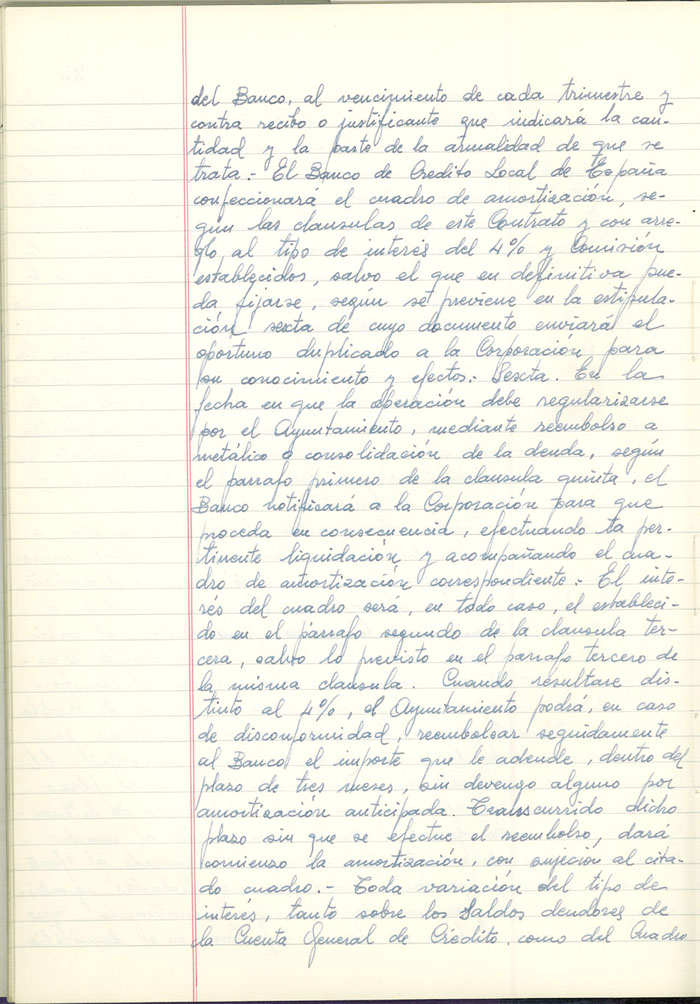 del Banco, al vencimiento de cada trimestre y
contra recibo o justificante que indicará la can-
tidad y la parte de la anualidad de que se
trata.- El Banco de Credito Local de España
confeccionará el cuadro de amortización, se-
gún las clausulas de este Contrato y con arre-
glo, al tipo de interés del 4% y Comisión
establecidos, salvo el que en definitiva pue-
da fijarse, según se previene en la estipula-
ción sexta de cuyo documento enviará el
oportuno duplicado a la Corporación para
su conocimiento y efectos.: Sexta. En la
fecha en que la operación debe regularizarse
por el Ayuntamiento, mediante reembolso a
metálico o consolidación de la deuda, según
el parrafo primero de la clausula quinta, el
Banco notificará a la Corporación para que
proceda en consecuencia, efectuando la per-
tinente liquidación y acompañando el cua-
dro de amortización correspondiente.- El inte-
rés del cuadro será, en todo caso, el estableci-
do en el párrafo segundo de la clausula ter-
cera, salvo lo previsto en el parrafo tercero de
la misma clausula. Cuando resultare dis-
tinto al 4%, el Ayuntamiento podrá, en caso
de disconformidad, reembolsar seguidamente
al Banco el importe que le adende, dentro del
plazo de tres meses, sin devengo alguno por
amortización anticipada. Transcurrido dicho
plazo sin que se efectue el reembolso, dará
comienzo la amortización, con sujeción al cita-
do cuadro.- Toda variación del tipo de
interés, tanto sobre los Saldos deudores de
la Cuenta General de Crédito, como del Cuadro